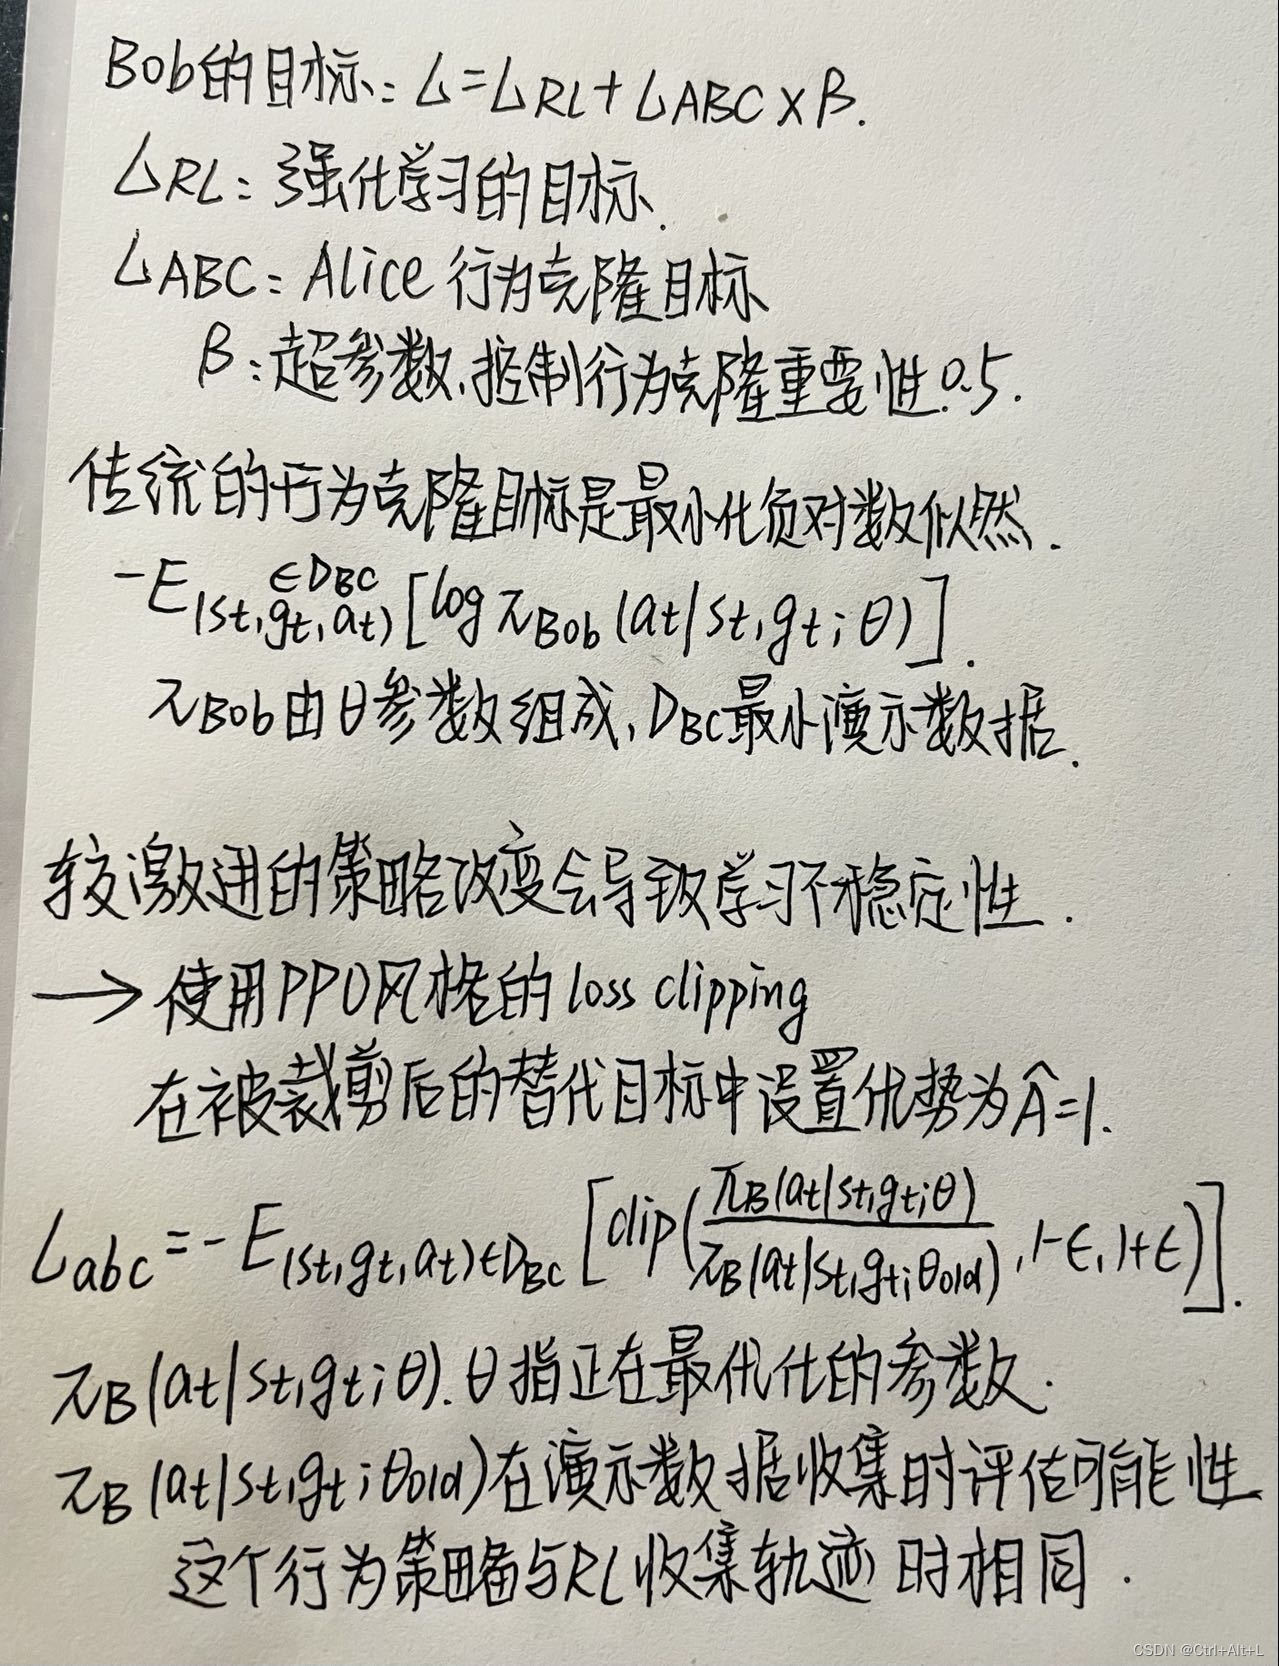 Bob的目标: L=L_RL+L_ABC×β.
L_RL: 强化学习的目标.
L_ABC: Alice 行为克隆目标
β: 超参数,控制行为克隆重要性0.5.
传统的行为克隆目标是最小化负对数似然.
-E_(st,gt,at)∈D_BC [log π_Bob (at|st,gt;θ)].
π_Bob由θ参数组成, D_BC最小演示数据.
较激进的策略改变会导致学习不稳定性.
→使用PPO风格的loss clipping
在被裁剪后的替代目标中设置优势为Â=1.
L_abc=-E_(st,gt,at)∈D_BC [clip(π_B(at|st,gt;θ)/π_B(at|st,gt;θold), 1-ϵ, 1+ϵ)].
π_B(at|st,gt;θ).θ指正在最优化的参数.
π_B(at|st,gt;θold)在演示数据收集时评估可能性
这个行为策略与RL收集轨迹时相同.
CSDN @Ctrl+Alt+L